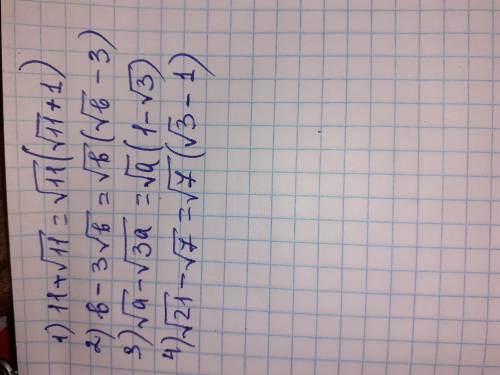 1) 11+√11 = √11(√11+1)
2) в-3√в = √в(√в-3)
3) √a-√3a = √a(1-√3)
4) √21-√7 = √7(√3-1)